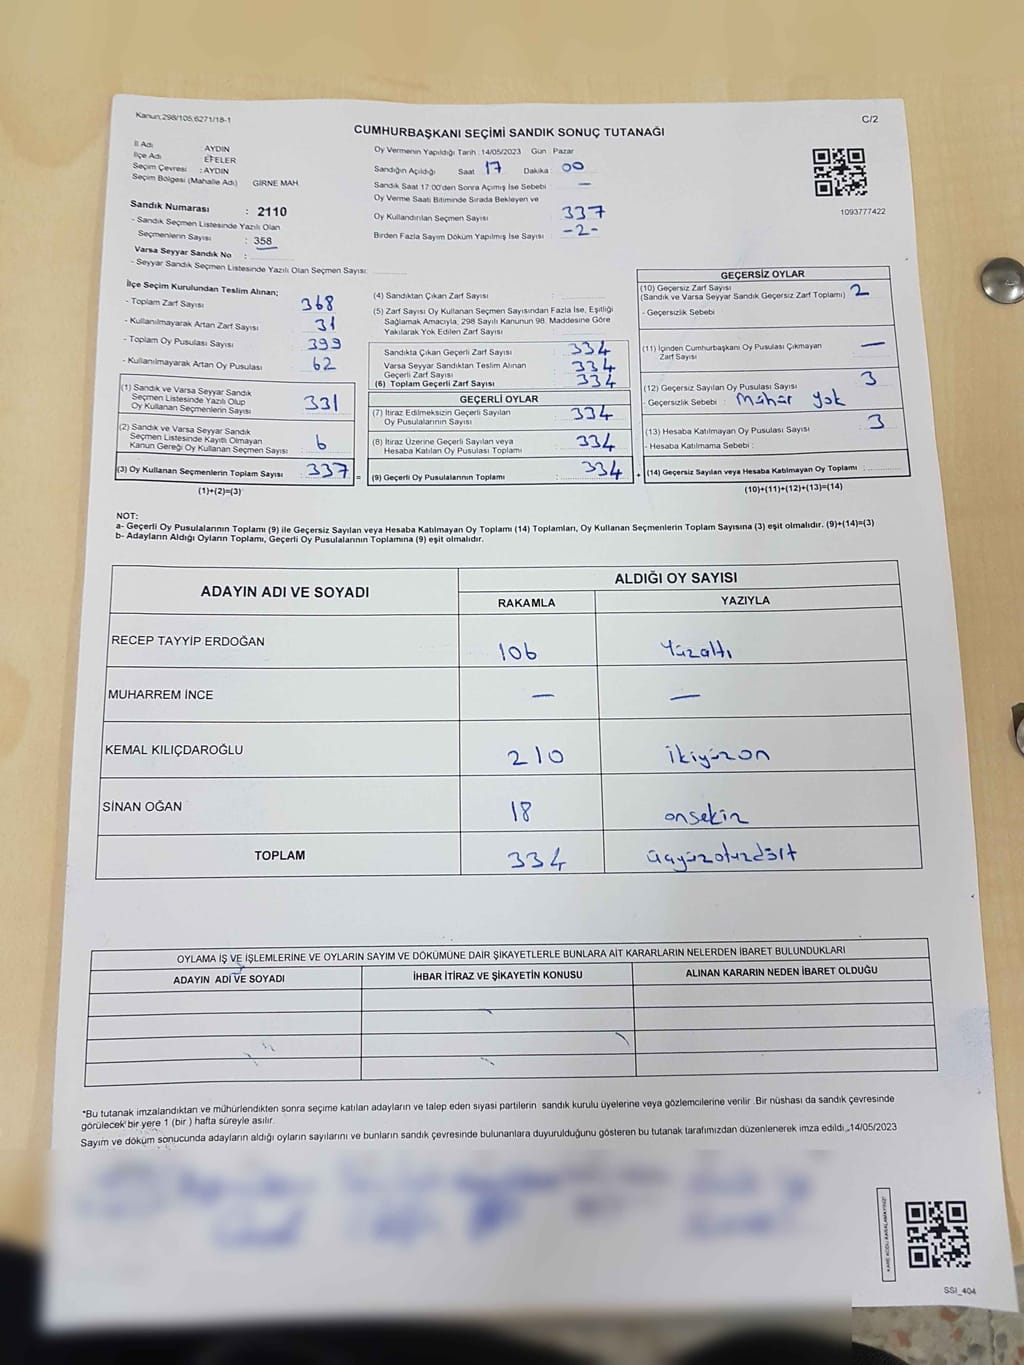 Kanun;298/105,6271/18-1
C/2
CUMHURBAŞKANI SEÇİMİ SANDIK SONUÇ TUTANAĞI
İl Adı : AYDIN
İlçe Adı EFELER
Seçim Çevresi : AYDIN
Seçim Bölgesi (Mahalle Adı) GİRNE MAH.
Sandık Numarası : 2110
- Sandık Seçmen Listesinde Yazılı Olan
Seçmenlerin Sayısı : 358
Varsa Seyyar Sandık No :
- Seyyar Sandık Seçmen Listesinde Yazılı Olan Seçmen Sayısı:
Oy Vermenin Yapıldığı Tarih :14/05/2023 Gün : Pazar
Sandığın Açıldığı Saat 17 Dakika : 00
Sandık Saat 17:00'den Sonra Açımış İse Sebebi —
Oy Verme Saati Bitiminde Sırada Bekleyen ve
Oy Kullandırılan Seçmen Sayısı 337
Birden Fazla Sayım Döküm Yapılmış İse Sayısı : -2-
1093777422
İlçe Seçim Kurulundan Teslim Alınan;
- Toplam Zarf Sayısı 368
- Kullanılmayarak Artan Zarf Sayısı 31
- Toplam Oy Pusulası Sayısı 399
- Kullanılmayarak Artan Oy Pusulası 62
(1) Sandık ve Varsa Seyyar Sandık
Seçmen Listesinde Yazılı Olup
Oy Kullanan Seçmenlerin Sayısı 331
(2) Sandık ve Varsa Seyyar Sandık
Seçmen Listesinde Kayıtlı Olmayan
Kanun Gereği Oy Kullanan Seçmen Sayısı : 6
(3) Oy Kullanan Seçmenlerin Toplam Sayısı : 337 =
(1)+(2)=(3)
(4) Sandıktan Çıkan Zarf Sayısı :
(5) Zarf Sayısı Oy Kullanan Seçmen Sayısından Fazla İse, Eşitliği
Sağlamak Amacıyla, 298 Sayılı Kanunun 98. Maddesine Göre
Yakılarak Yok Edilen Zarf Sayısı
Sandıkta Çıkan Geçerli Zarf Sayısı : 334
Varsa Seyyar Sandıktan Teslim Alınan
Geçerli Zarf Sayısı 334
(6) Toplam Geçerli Zarf Sayısı : 334
GEÇERLİ OYLAR
(7) İtiraz Edilmeksizin Geçerli Sayılan
Oy Pusulasının Sayısı : 334
(8) İtiraz Üzerine Geçerli Sayılan veya
Hesaba Katılan Oy Pusulası Toplamı : 334
(9) Geçerli Oy Pusulalarının Toplamı : 334 +
GEÇERSİZ OYLAR
(10) Geçersiz Zarf Sayısı
(Sandık ve Varsa Seyyar Sandık Geçersiz Zarf Toplamı) 2
- Geçersizlik Sebebi
(11) İçinden Cumhurbaşkanı Oy Pusulası Çıkmayan
Zarf Sayısı —
(12) Geçersiz Sayılan Oy Pusulası Sayısı 3
- Geçersizlik Sebebi : Mühür yok
(13) Hesaba Katılmayan Oy Pusulası Sayısı 3
- Hesaba Katılmama Sebebi :
(14) Geçersiz Sayılan veya Hesaba Katılmayan Oy Toplamı :
(10)+(11)+(12)+(13)=(14)
NOT:
a- Geçerli Oy Pusulalarının Toplamı (9) ile Geçersiz Sayılan veya Hesaba Katılmayan Oy Toplamı (14) Toplamları, Oy Kullanan Seçmenlerin Toplam Sayısına (3) eşit olmalıdır. (9)+(14)=(3)
b- Adayların Aldığı Oyların Toplamı, Geçerli Oy Pusulalarının Toplamına (9) eşit olmalıdır.
ADAYIN ADI VE SOYADI
ALDIĞI OY SAYISI
RAKAMLA YAZIYLA
RECEP TAYYİP ERDOĞAN 106 Yüzaltı
MUHARREM İNCE — —
KEMAL KILIÇDAROĞLU 210 ikiyüzon
SİNAN OĞAN 18 onsekiz
TOPLAM 334 üçyüzotuzdört
OYLAMA İŞ VE İŞLEMLERİNE VE OYLARIN SAYIM VE DÖKÜMÜNE DAİR ŞİKAYETLERLE BUNLARA AİT KARARLARIN NELERDEN İBARET BULUNDUKLARI
ADAYIN ADI VE SOYADI İHBAR İTİRAZ VE ŞİKAYETİN KONUSU ALINAN KARARIN NEDEN İBARET OLDUĞU
*Bu tutanak imzalandıktan ve mühürlendikten sonra seçime katılan adayların ve talep eden siyasi partilerin sandık kurulu üyelerine veya gözlemcilerine verilir .Bir nüshası da sandık çevresinde
görülecek bir yere 1 (bir ) hafta süreyle asılır.
Sayım ve döküm sonucunda adayların aldığı oyların sayılarını ve bunların sandık çevresinde bulunanlara duyurulduğunu gösteren bu tutanak tarafımızdan düzenlenerek imza edildi.,14/05/2023
KARE KODU KARALAMAYINIZ!
SSI_404